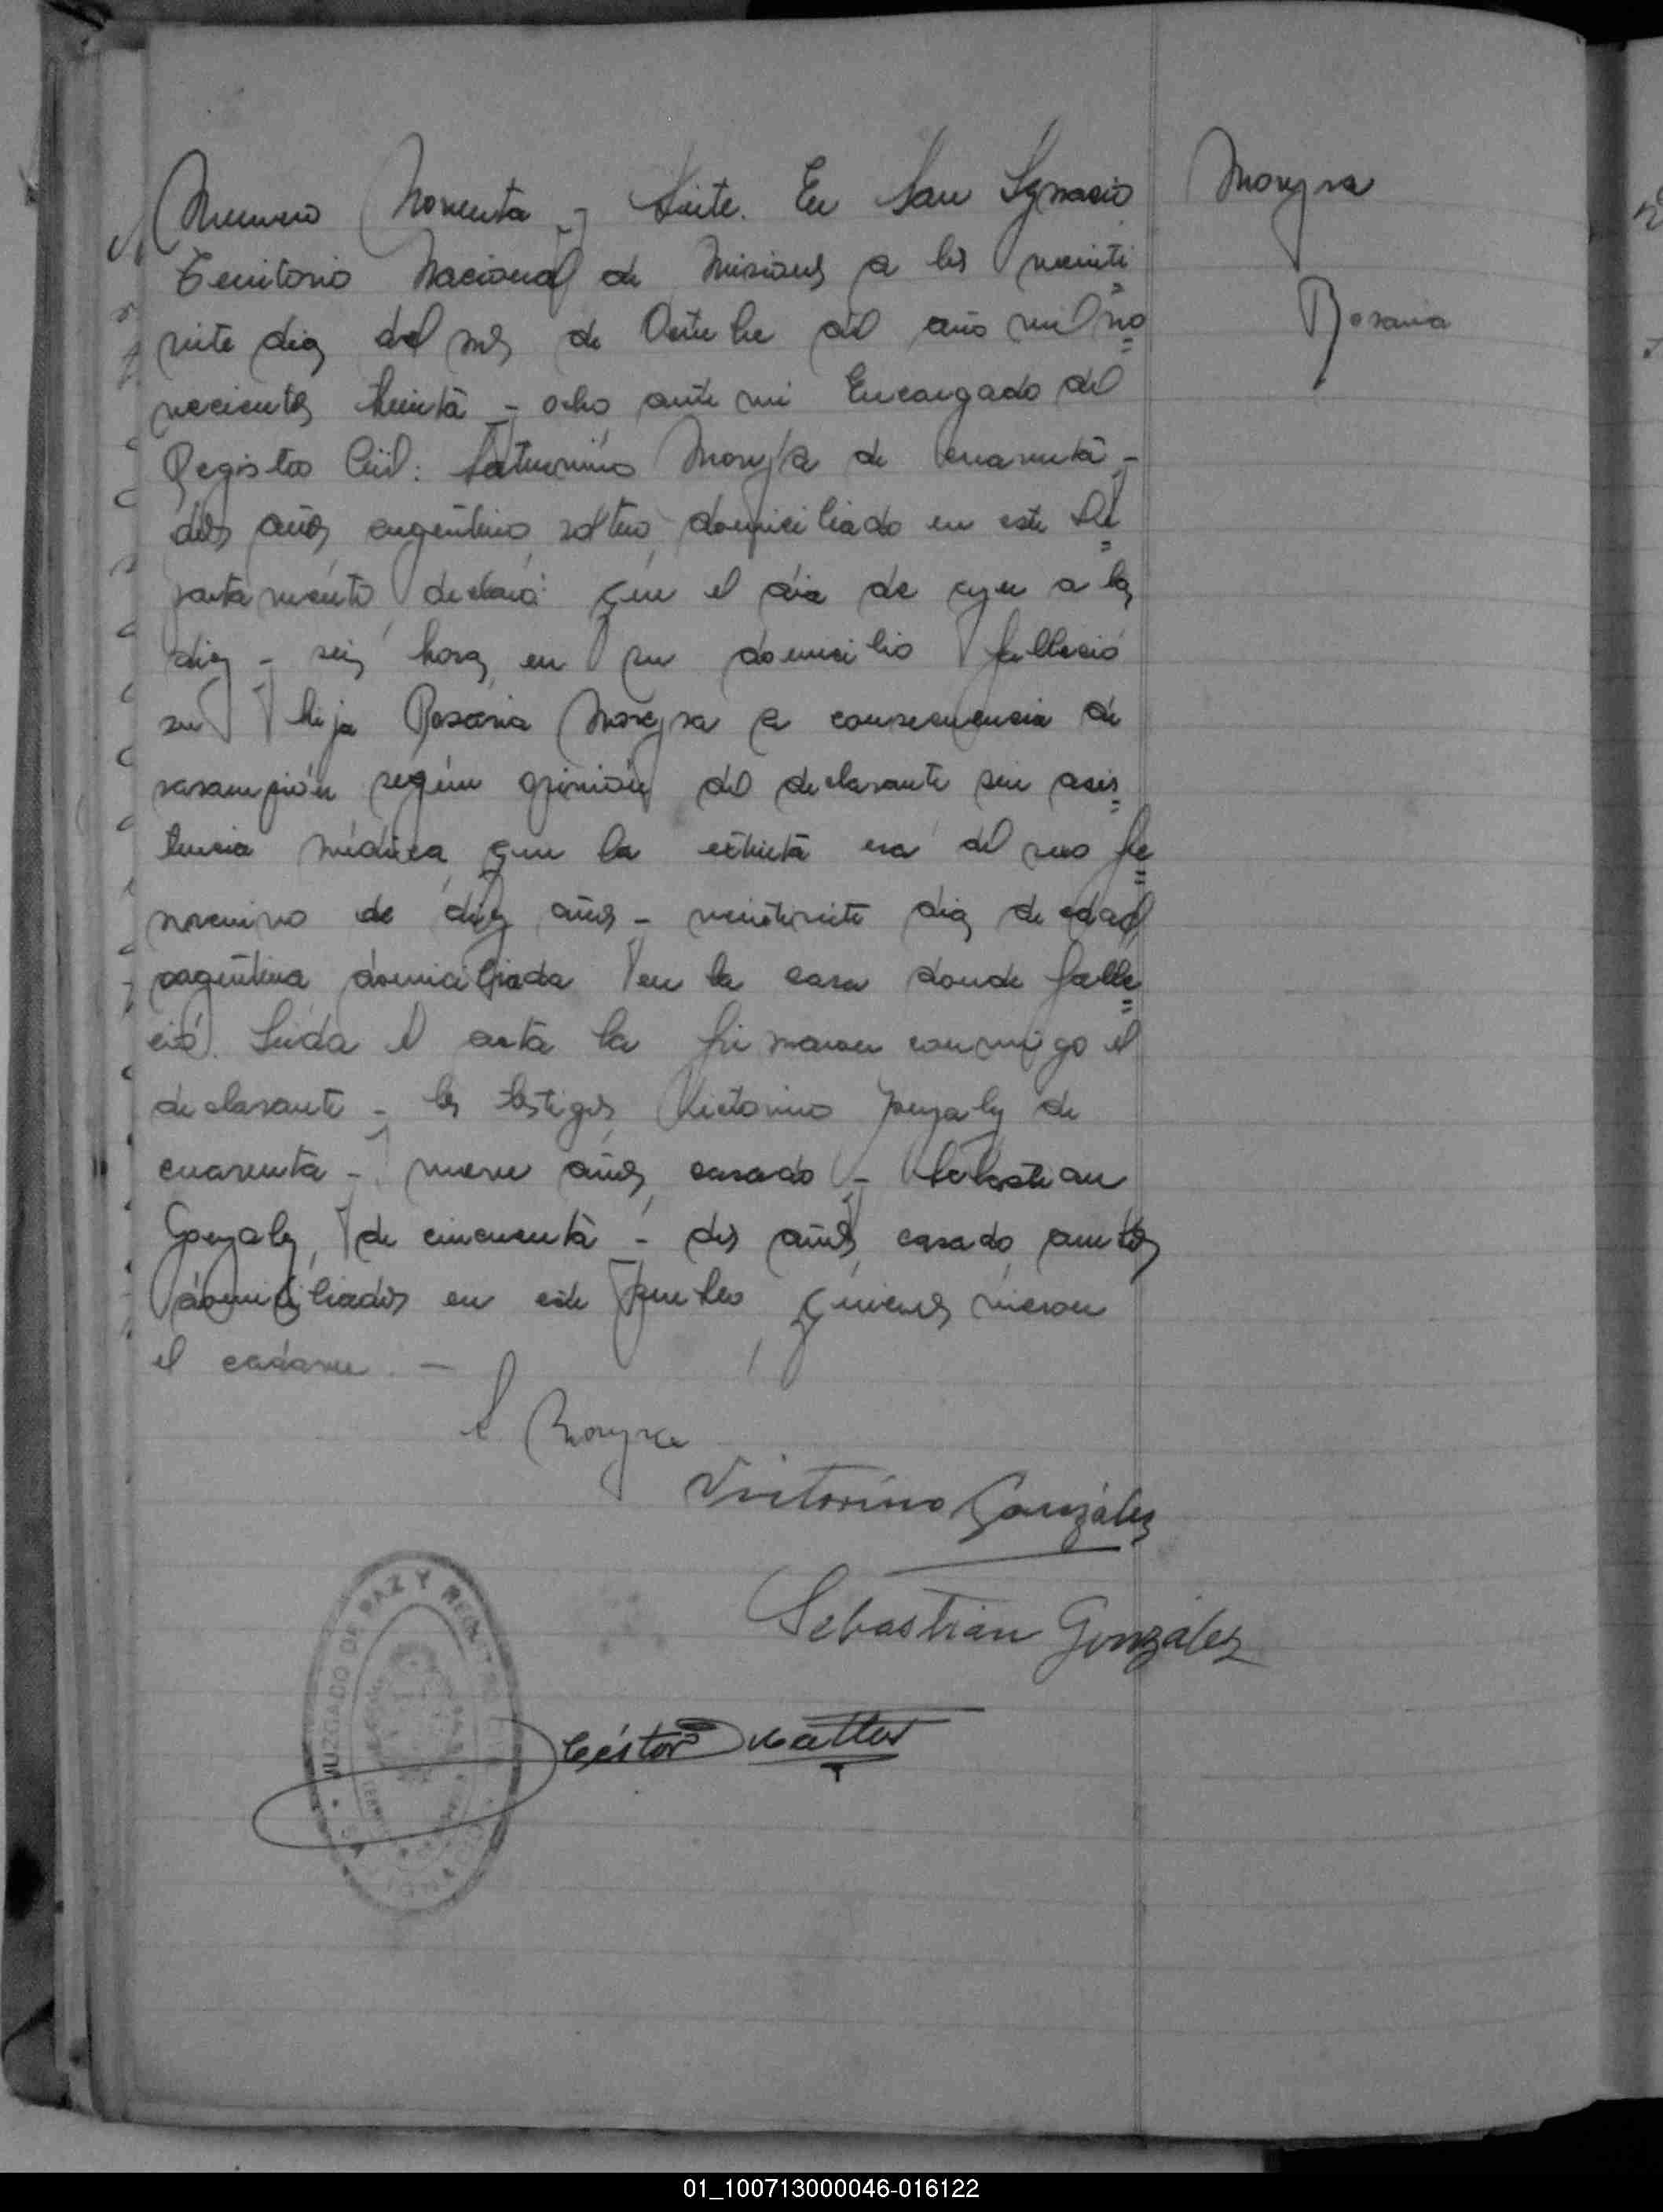 Numero Noventa y Siete. En San Ygnacio
Territorio Nacional de Misiones a los veinti=
siete dias del mes de Octubre del año mil no=
vecientos treinta y ocho, ante mi Encargado del
Registro Civil: Saturnino Moreyra de cuarenta y
dos años, argentino, soltero, domiciliado en este De=
partamento, declaró: que el dia de ayer a las
diez y seis horas, en su domicilio falleció
su hija Rosaria Moreyra a consecuencia de
sarampión según opinión del declarante sin asis=
tencia médica, que la extinta era del sexo fe=
menino de diez años y veintisiete dias de edad,
argentina domiciliada en la casa donde falle=
ció. Leida el acta la firmaron conmigo el
declarante y los testigos Victorino Gonzalez de
cuarenta y nueve años, casado y Sebastian
Gonzalez, de cincuenta y dos años, casado, ambos
domiciliados en este pueblo, quienes vieron
el cadaver. —
S Moreyra
Victorino González
Sebastian González
Néstor
JUZGADO DE PAZ Y REGISTRO
Moreyra
Rosaria
01_100713000046-016122